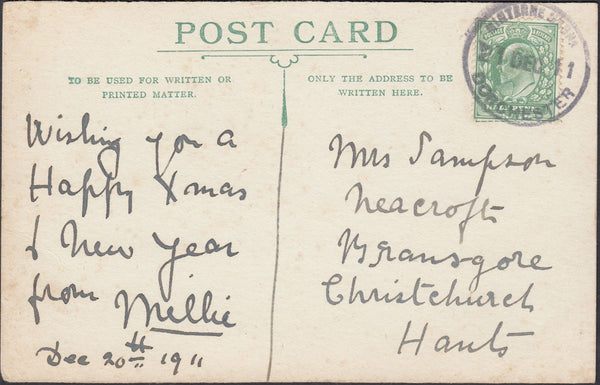 POST CARD
TO BE USED FOR WRITTEN OR
PRINTED MATTER.
ONLY THE ADDRESS TO BE
WRITTEN HERE.
Wishing you a
Happy Xmas
& New Year
from Millie
Dec 20th 1911
Mrs Sampson
Neacroft
Bransgore
Christchurch
Hants
DEC 11
DORCHESTER